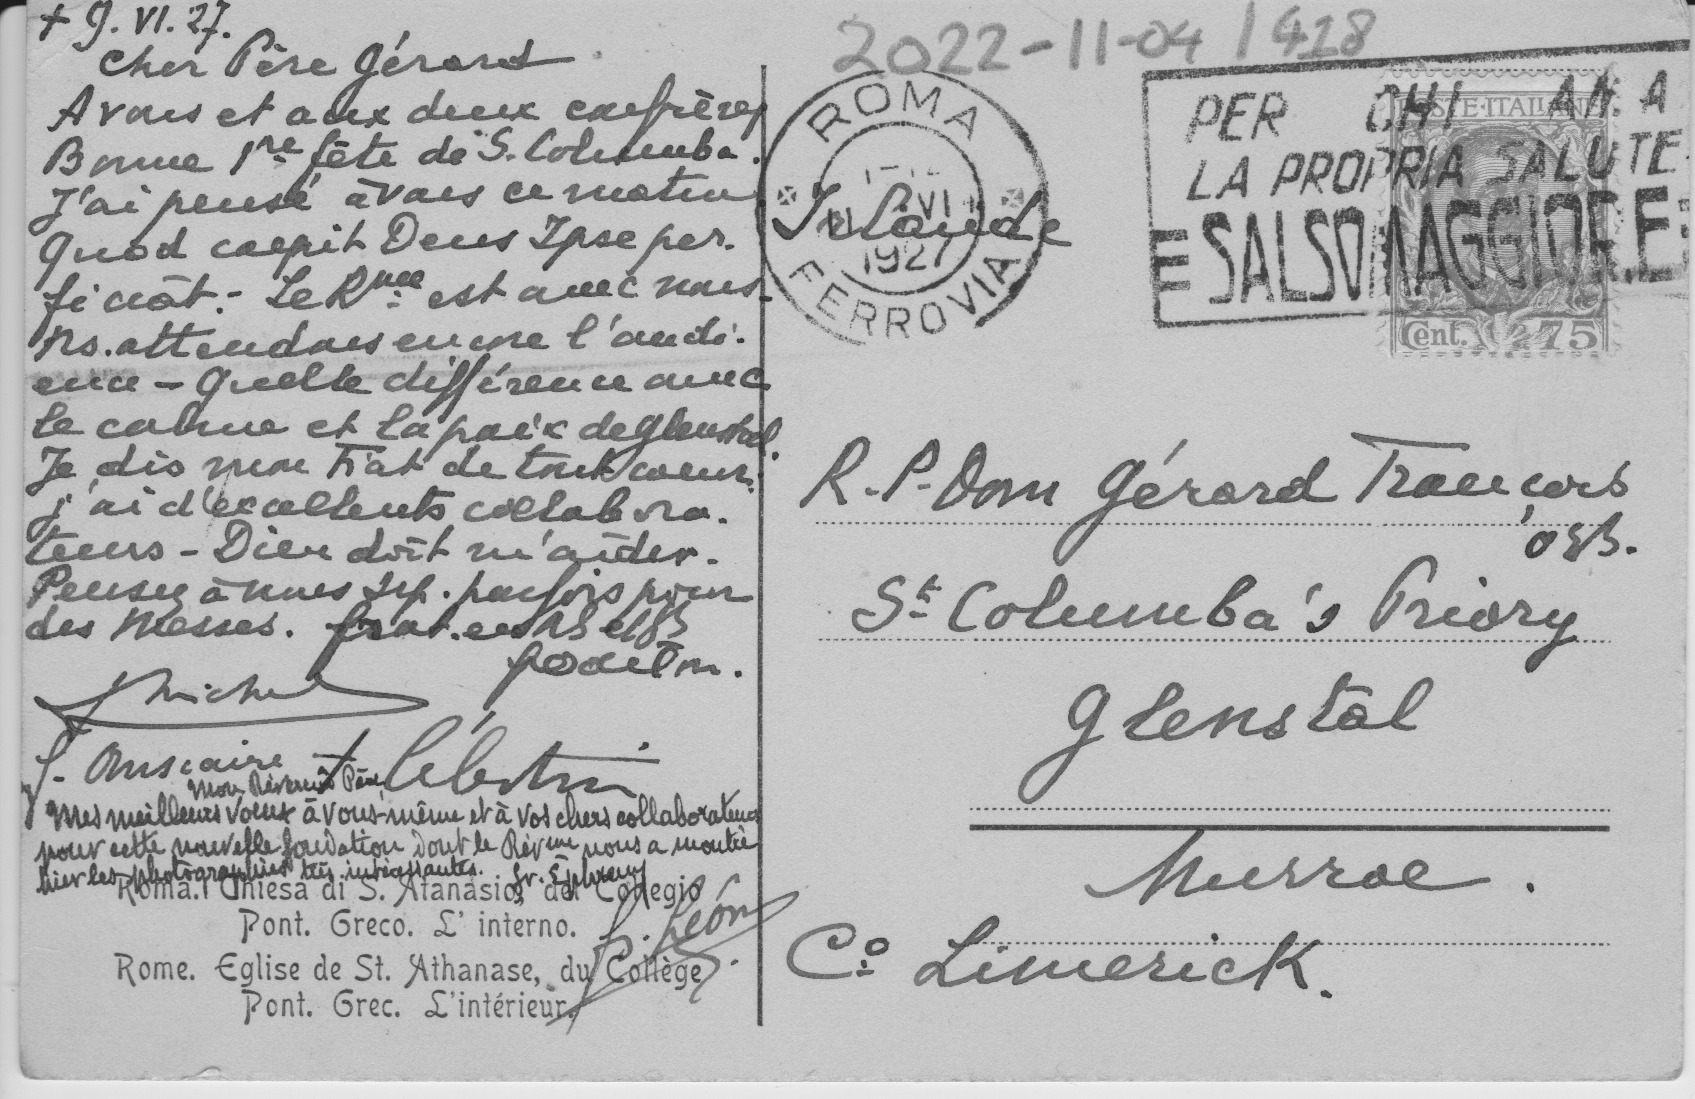 + 9. VI. 27.
Cher Père Gérard
A vous et aux deux confrères
Bonne 1re fête de S. Columba.
J'ai pensé à vous ce matin
Quod coepit Deus Ipse per-
ficiat.- Le Rme est avec nous-
Ns. attendons encore l'audi-
ence - Quelle différence avec
le calme et la paix de Glenstal.
Je dis mon Fiat de tout coeur.
j'ai d'excellents collabora-
teurs - Dieu doit m'aider.
Pensez à nous parfois pour
des Messes.
Michel
f. Anscaire f. Célestin
Mon Révérend Père,
Mes meilleurs voeux à vous-même et à vos chers collaborateurs
pour cette nouvelle fondation dont le Révme nous a montré
hier les photographies très intéressantes. fr. Ephrem
Roma. Chiesa di S. Atanasio, del Collegio
Pont. Greco. L' interno.
f. Léon
Rome. Eglise de St. Athanase, du Collège
Pont. Grec. L'intérieur.
2022-11-04 / 418
ROMA
VI
1927
FERROVIA
PER CHI AMA
LA PROPRIA SALUTE
SALSOMAGGIORE
POSTE·ITALIANE
Cent. 75
Irlande
R. P. Dom Gérard François
OSB.
St Columba's Priory
Glenstal
Murroe.
Co Limerick.